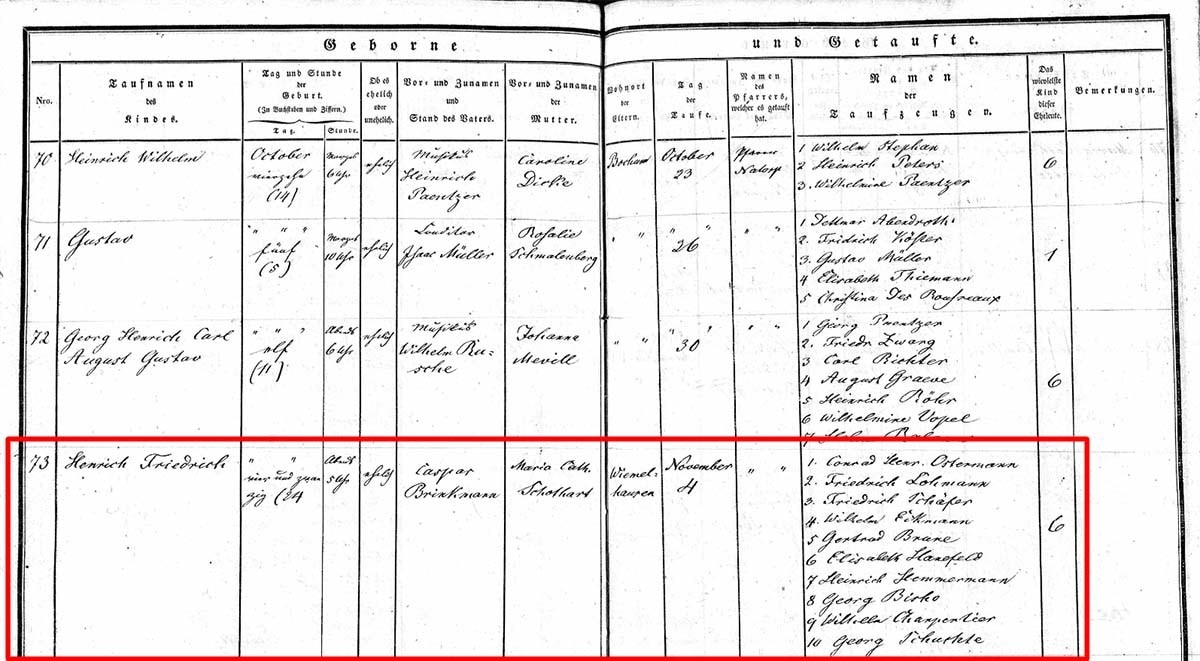 Geborne und Getaufte.
Nro.
Taufnamen
des
Kindes.
Tag und Stunde
der
Geburt.
(In Buchstaben und Ziffern.)
Tag.
Stunde.
Ob es
ehelich
oder
unehelich.
Vor- und Zunamen
und
Stand des Vaters.
Vor- und Zunamen
der
Mutter.
Wohnort
der
Eltern.
Tag
der
Taufe.
Namen
des
Pfarrers,
welcher es getauft
hat.
Namen
der
Taufzeugen.
Das
wievielste
Kind
dieser
Eheleute.
Bemerkungen.
70
Heinrich Wilhelm
October
vierzehn
(14)
Morgens
6 Uhr
ehelich
Musikus
Heinrich
Paentzer
Caroline
Dicke
Bochum
October
23
Pfarrer
Natorp
1 Wilhelm Stephan
2 Heinrich Peters
3. Wilhelmine Paentzer
6
71
Gustav
" " "
fünf
(5)
Morgens
10 Uhr
ehelich
Conditor
Isaac Müller
Rosalie
Schmalenberg
" "
"
26
" "
1 Dettmar Abendroth
2. Fridrich Köster
3. Gustav Müller
4 Elisabeth Thiemann
5 Christina Des
1
72
Georg Henrich Carl
August Gustav
" " "
elf
(11)
Abends
6 Uhr
ehelich
Musikus
Wilhelm Ru-
sche
Johanna
Mevill
" "
" "
30
" "
1 Georg Paentzer
2. Friedr Zwang
3 Carl Richter
4 August Graeve
5 Heinrich Röhr
6 Wilhelmine Vopel
7
6
73
Henrich Friedrich
" "
vier und zwan
zig (24
Abends
5 Uhr
ehelich
Caspar
Brinkmann
Maria Cath.
Schothart
Wiemel-
hausen
November
4
" "
1. Conrad Henr. Ostermann
2. Friedrich Lohmann
3. Friedrich Schäfer
4. Wilhelm Eikmann
5 Gertrud Brune
6 Elisabeth Hanefeld
7 Heinrich Hemmermann
8 Georg Bisko
9 Wilhelm Charpentier
10 Georg Schuchte
6